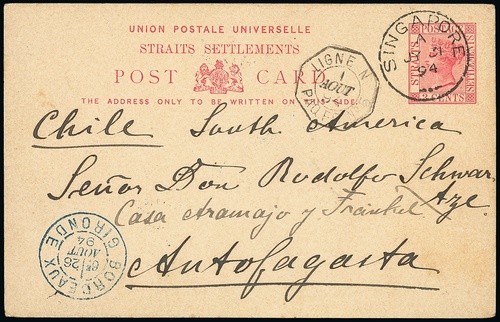 UNION POSTALE UNIVERSELLE
STRAITS SETTLEMENTS
POST CARD
THE ADDRESS ONLY TO BE WRITTEN ON THIS SIDE
SINGAPORE
A
31
94
STRAITS POSTAGE
3 CENTS
LIGNE N
1
AOUT
Chile South America
Señor Don Rodolfo Schwar
Casa Aramajo y Fränkel Aze.
Antofagasta
BORDEAUX
26
AOUT
94
GIRONDE